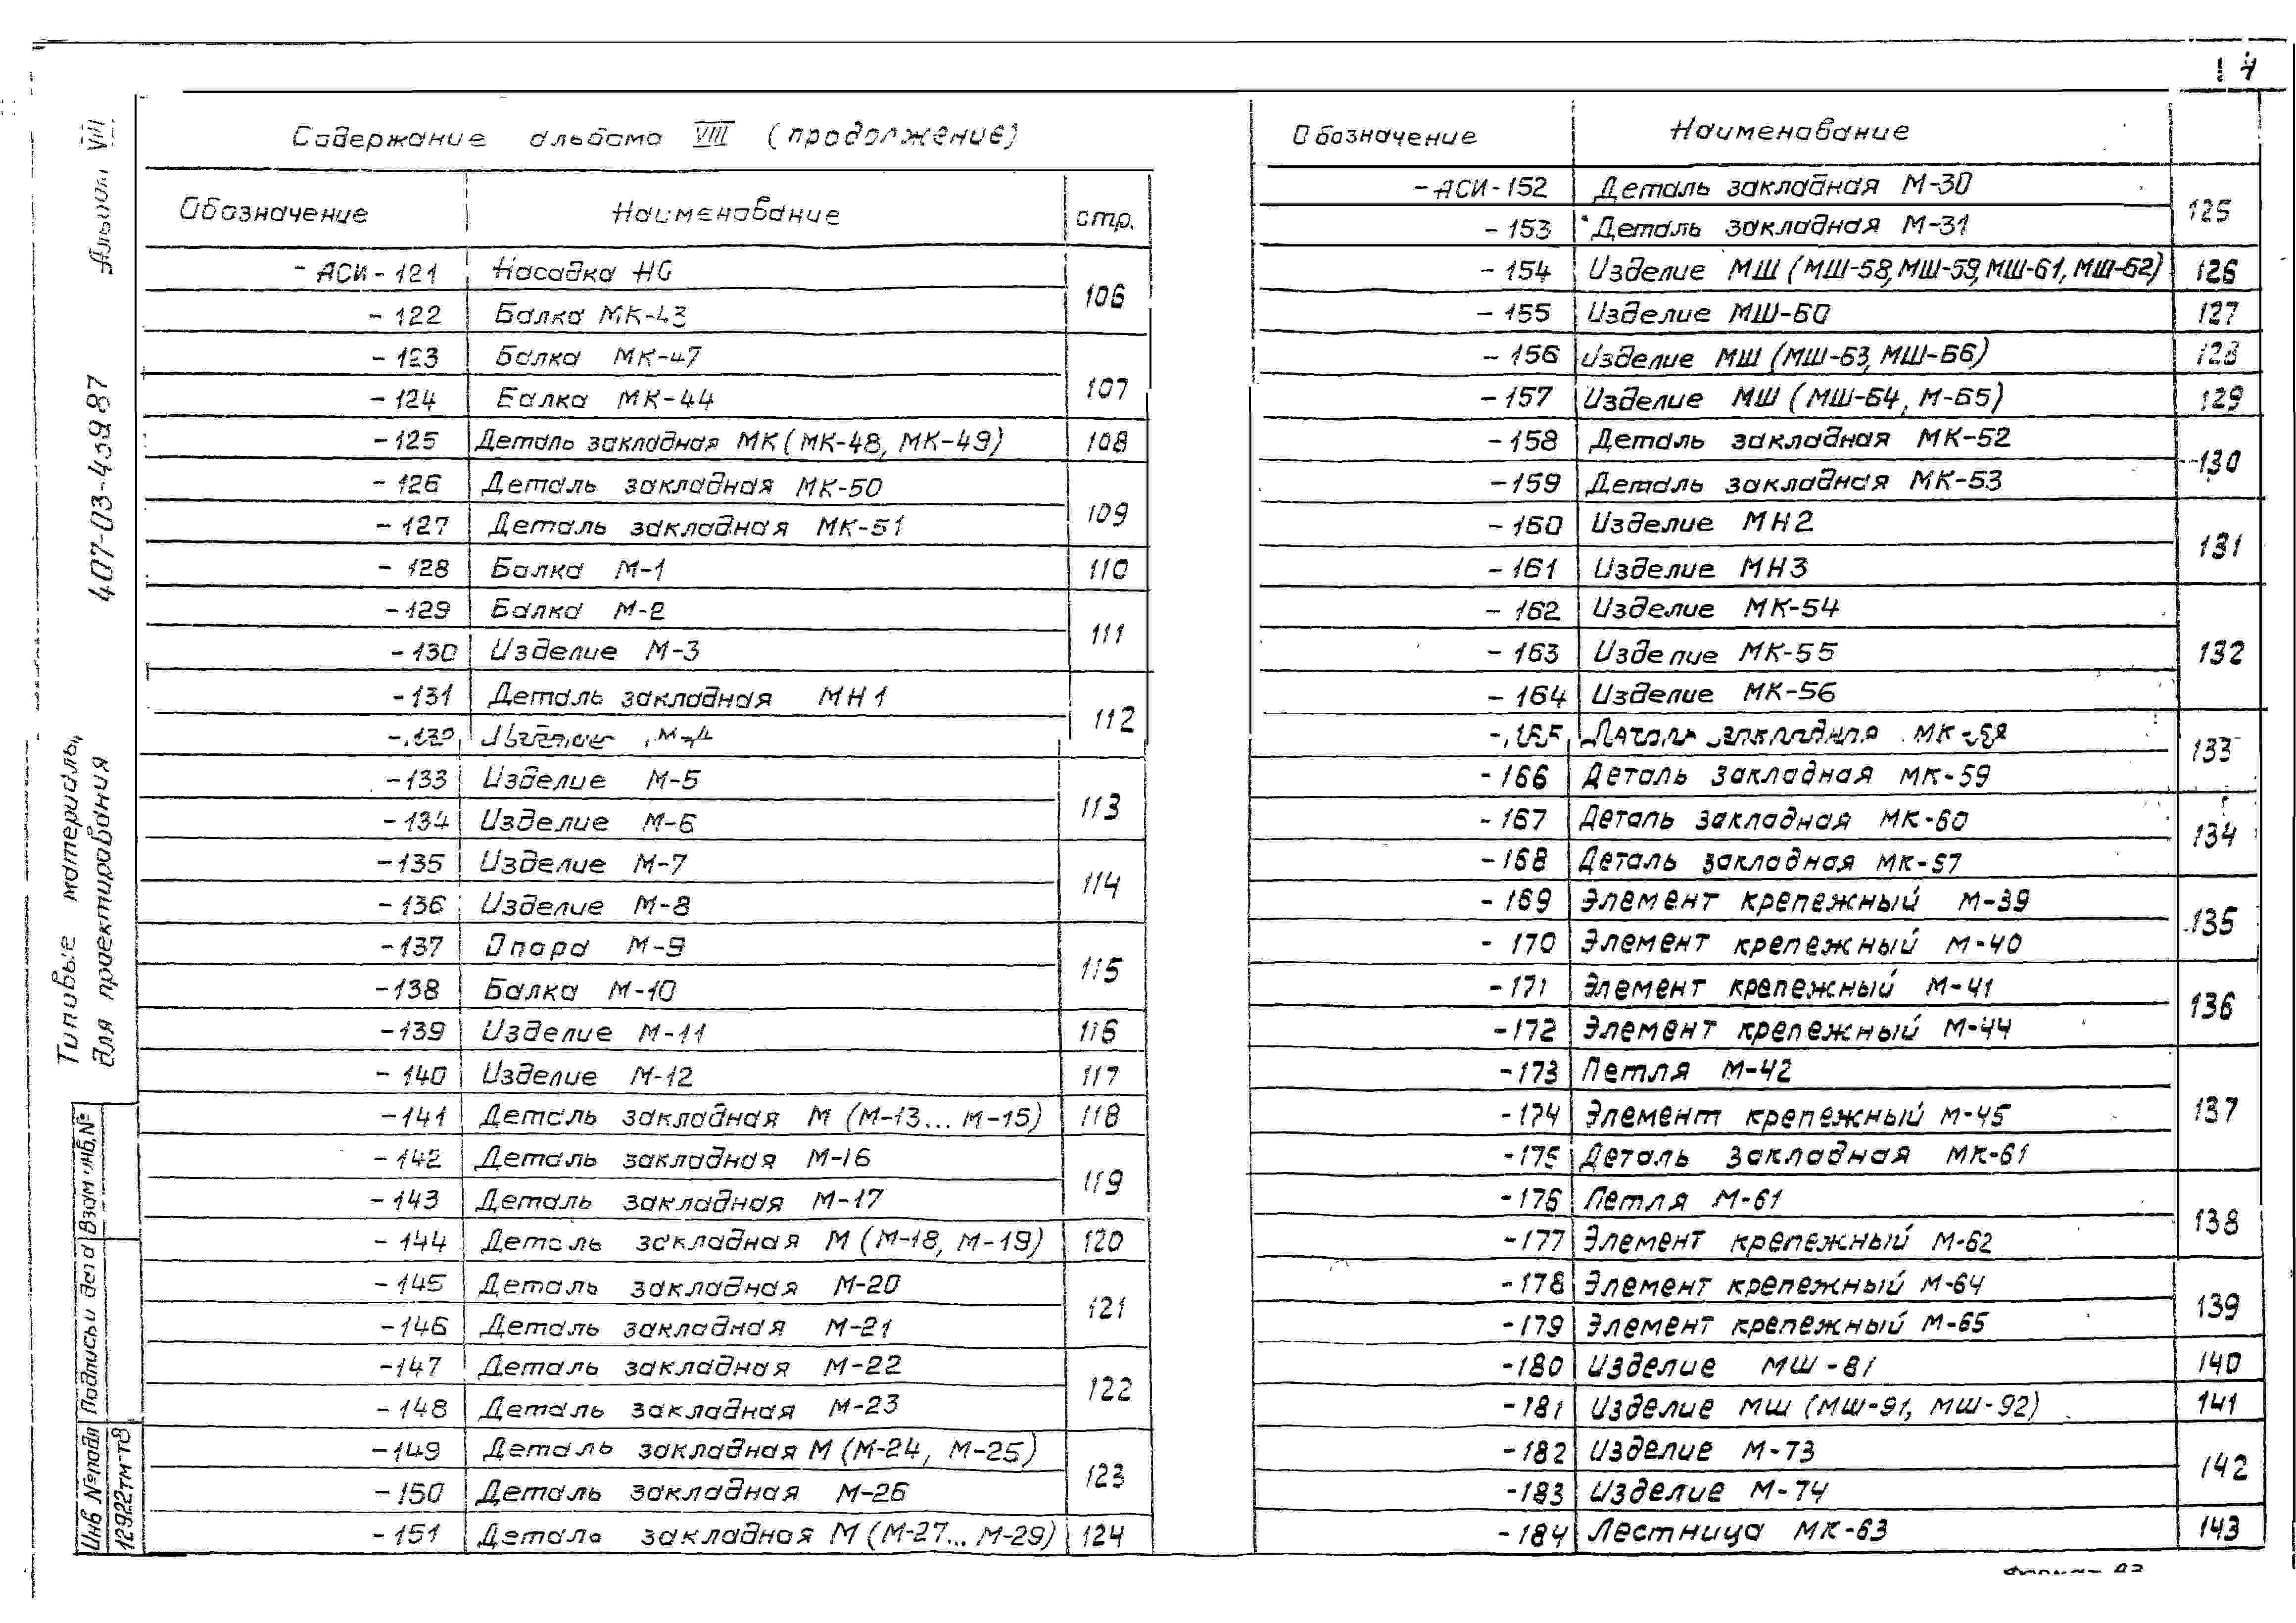 4
Альбом VIII
407-03-459 87
Типовые материалы
для проектирования
Взам инв.№
Подпись и дата
Инв №подл
12922тм-т8
Содержание альбома VIII (продолжение)
Обозначение Наименование стр.
- АСИ - 121 Насадка НС 106
- 122 Балка МК-43
- 123 Балка МК-47 107
- 124 Балка МК-44
- 125 Деталь закладная МК (МК-48, МК-49) 108
- 126 Деталь закладная МК-50 109
- 127 Деталь закладная МК-51
- 128 Балка М-1 110
- 129 Балка М-2 111
- 130 Изделие М-3
- 131 Деталь закладная МН1 112
- 132 Изделие М-4
- 133 Изделие М-5 113
- 134 Изделие М-6
- 135 Изделие М-7 114
- 136 Изделие М-8
- 137 Опора М-9 115
- 138 Балка М-10
- 139 Изделие М-11 116
- 140 Изделие М-12 117
- 141 Деталь закладная М (М-13... М-15) 118
- 142 Деталь закладная М-16 119
- 143 Деталь закладная М-17
- 144 Деталь закладная М (М-18, М-19) 120
- 145 Деталь закладная М-20 121
- 146 Деталь закладная М-21
- 147 Деталь закладная М-22 122
- 148 Деталь закладная М-23
- 149 Деталь закладная М (М-24, М-25) 123
- 150 Деталь закладная М-26
- 151 Деталь закладная М (М-27... М-29) 124
Обозначение Наименование
- АСИ - 152 Деталь закладная М-30 125
- 153 Деталь закладная М-31
- 154 Изделие МШ (МШ-58, МШ-59, МШ-61, МШ-62) 126
- 155 Изделие МШ-60 127
- 156 Изделие МШ (МШ-63, МШ-66) 128
- 157 Изделие МШ (МШ-64, М-65) 129
- 158 Деталь закладная МК-52 130
- 159 Деталь закладная МК-53
- 160 Изделие МН2 131
- 161 Изделие МН3
- 162 Изделие МК-54 132
- 163 Изделие МК-55
- 164 Изделие МК-56
- 165 Деталь закладная МК-58 133
- 166 Деталь закладная МК-59
- 167 Деталь закладная МК-60 134
- 168 Деталь закладная МК-57
- 169 Элемент крепежный М-39 135
- 170 Элемент крепежный М-40
- 171 Элемент крепежный М-41 136
- 172 Элемент крепежный М-44
- 173 Петля М-42 137
- 174 Элемент крепежный М-45
- 175 Деталь закладная МК-61
- 176 Петля М-61 138
- 177 Элемент крепежный М-62
- 178 Элемент крепежный М-64 139
- 179 Элемент крепежный М-65
- 180 Изделие МШ-81 140
- 181 Изделие МШ (МШ-91, МШ-92) 141
- 182 Изделие М-73 142
- 183 Изделие М-74
- 184 Лестница МК-63 143